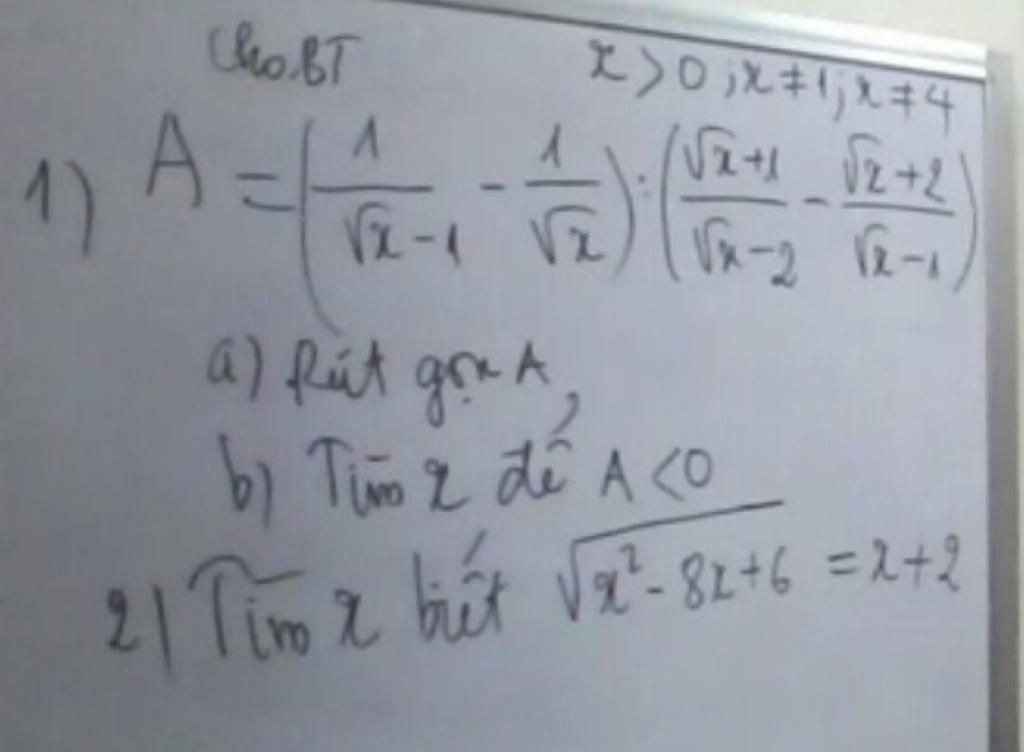 Cho BT x > 0 ; x ≠ 1 ; x ≠ 4
1) A = (1/(√x - 1) - 1/√x) : ((√x + 1)/(√x - 2) - (√x + 2)/(√x - 1))
a) Rút gọn A
b) Tìm x để A < 0
2) Tìm x biết √(x² - 8x + 6) = x + 2